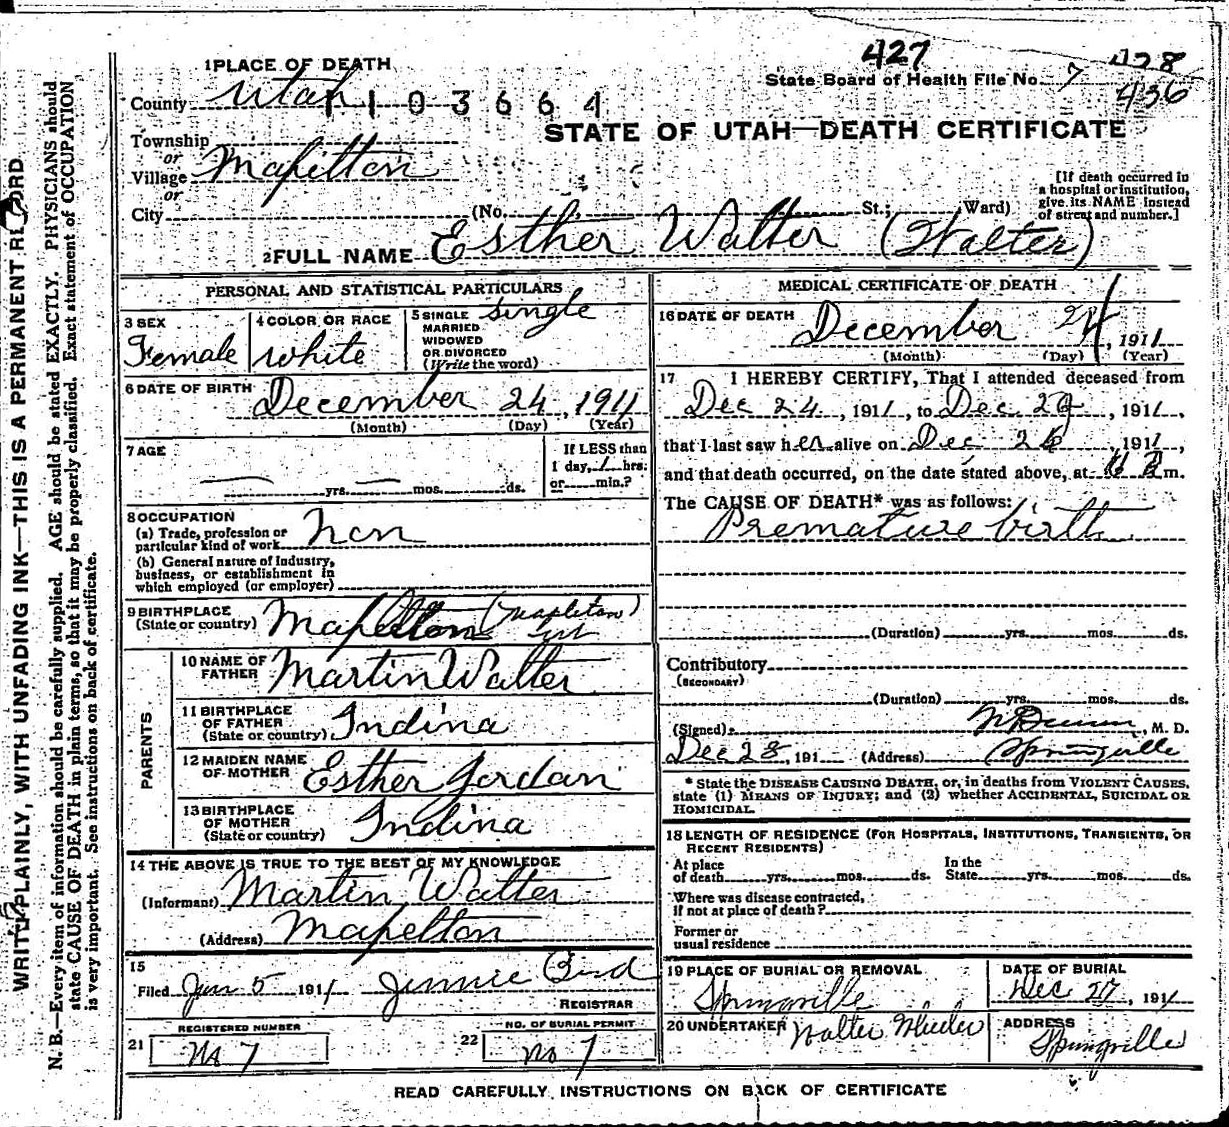 427
428
436
1 PLACE OF DEATH
State Board of Health File No. 7
County Utah
1103664
STATE OF UTAH—DEATH CERTIFICATE
Township
or
Village Mapelton
or
City (No. St.; Ward)
[If death occurred in
a hospital or institution,
give its NAME instead
of street and number.]
2 FULL NAME Esther Walter (Walter)
PERSONAL AND STATISTICAL PARTICULARS
3 SEX Female
4 COLOR OR RACE white
5 SINGLE
MARRIED
WIDOWED
OR DIVORCED
(Write the word) single
6 DATE OF BIRTH December 24, 1911
(Month) (Day) (Year)
7 AGE
yrs. mos. ds.
If LESS than
1 day, 1 hrs.
or min.?
8 OCCUPATION
(a) Trade, profession or
particular kind of work non
(b) General nature of Industry,
business, or establishment in
which employed (or employer)
9 BIRTHPLACE
(State or country) Mapelton (Mapleton)
PARENTS
10 NAME OF
FATHER Martin Walter
11 BIRTHPLACE
OF FATHER
(State or country) Indina
12 MAIDEN NAME
OF MOTHER Esther Jordan
13 BIRTHPLACE
OF MOTHER
(State or country) Indina
14 THE ABOVE IS TRUE TO THE BEST OF MY KNOWLEDGE
(Informant) Martin Walter
(Address) Mapelton
15
Filed Jan 5 191 Jennie Bird
REGISTRAR
REGISTERED NUMBER
21 No 7
NO. OF BURIAL PERMIT
22 no 7
MEDICAL CERTIFICATE OF DEATH
16 DATE OF DEATH
December 24, 1911
(Month) (Day) (Year)
17 I HEREBY CERTIFY, That I attended deceased from
Dec 24, 1911, to Dec , 1911,
that I last saw her alive on Dec 26, 1911,
and that death occurred, on the date stated above, at m.
The CAUSE OF DEATH* was as follows:
Premature birth
(Duration) yrs. mos. ds.
Contributory
(SECONDARY)
(Duration) yrs. mos. ds.
(Signed) , M. D.
Dec 28, 191 (Address) Springville
* State the DISEASE CAUSING DEATH, or, in deaths from VIOLENT CAUSES,
state (1) MEANS OF INJURY; and (2) whether ACCIDENTAL, SUICIDAL OR
HOMICIDAL.
18 LENGTH OF RESIDENCE (FOR HOSPITALS, INSTITUTIONS, TRANSIENTS, OR
RECENT RESIDENTS)
At place
of death yrs. mos. ds.
In the
State yrs. mos. ds.
Where was disease contracted,
if not at place of death?
Former or
usual residence
19 PLACE OF BURIAL OR REMOVAL
Springville
DATE OF BURIAL
Dec 27, 191
20 UNDERTAKER Walter Wheeler
ADDRESS
Springville
READ CAREFULLY INSTRUCTIONS ON BACK OF CERTIFICATE
WRITE PLAINLY, WITH UNFADING INK—THIS IS A PERMANENT RECORD
N. B.—Every item of information should be carefully supplied. AGE should be stated EXACTLY. PHYSICIANS should
state CAUSE OF DEATH in plain terms, so that it may be properly classified. Exact statement of OCCUPATION
is very important. See instructions on back of certificate.